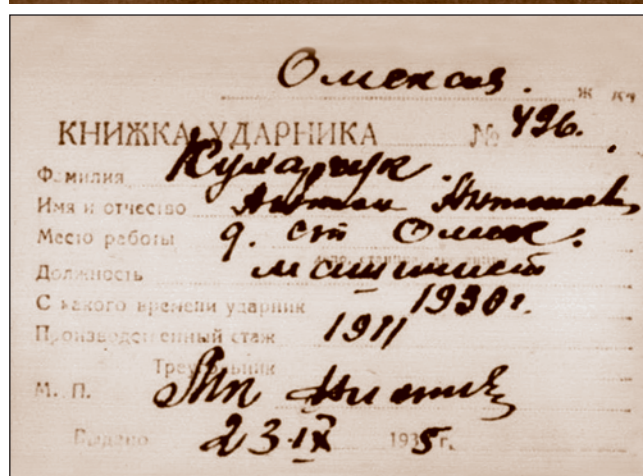 Омская. ж. д.
КНИЖКА УДАРНИКА № 496.
Фамилия Кухарчук
Имя и отчество Антон Антонович
Место работы д. ст Омск.
Должность машинист
С какого времени ударник 1930 г.
Производственный стаж 1911
Треугольник
М. П.
Выдано 23·IX 1935 г.